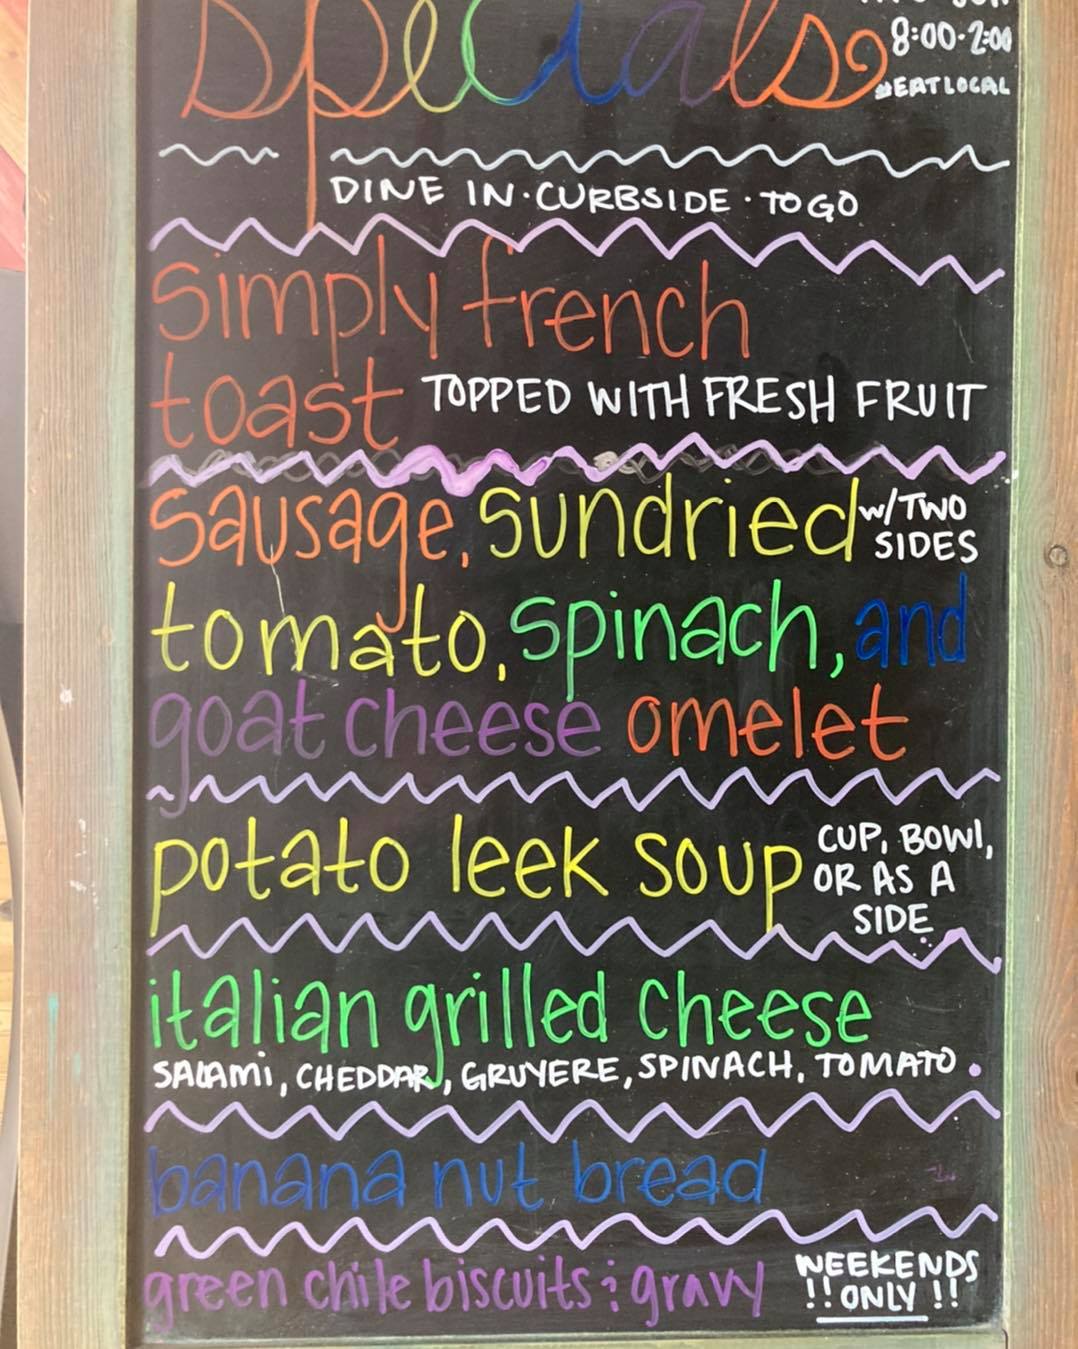 specials
8:00-2:00
#EATLOCAL
DINE IN · CURBSIDE · TO GO
simply french
toast TOPPED WITH FRESH FRUIT
sausage, sundried w/TWO
SIDES
tomato, spinach, and
goat cheese omelet
potato leek soup CUP, BOWL,
OR AS A
SIDE
italian grilled cheese
SALAMi, CHEDDAR, GRUYERE, SPINACH, TOMATO
banana nut bread
green chile biscuits & gravy WEEKENDS
!! ONLY !!